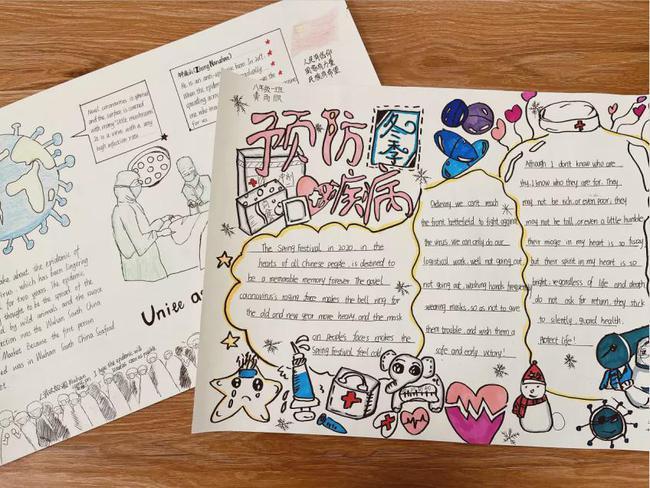 Novel coronavirus is spherical
and the surface is covered
with many little mushroom.
It is a virus with a very
high infection rate.
(Zhong Nanshan)
He is an anti-
When the epidemic
八年级一班
about the epidemic of
virus, which has been lingering
for two years. The epidemic
thought to be the spread of the
by wild animals, and the source
infection was the Wuhan South China
Market. Because the first person
was in Wuhan South China Seafood
Unite as
预防
冬季
疾病
The Spring Festival in 2020, in the
hearts of all Chinese people, is destined to
be a memorable memory forever. The novel
coronavirus's roaring force makes the bell ring for
the old and new year move heavy, and the mask
on people's faces makes the
Spring Festival feel cold
Ordinary we can't reach
the front battlefield to fight against
the virus. We can only do our
logistical work, well not going out
not going out, washing hands frequently
wearing masks, so as not to give
them trouble, and wish them a
safe and early victory!
Although I don't know who are
they. I know who they are for. They
may not be rich, or even poor; they
may not be tall, or even a little humble
their image in my heart is so fuzzy
but their spirit in my heart is so
bright; regardless of life and death,
do not ask for return, they stick
to silently guard health.
Protect life!